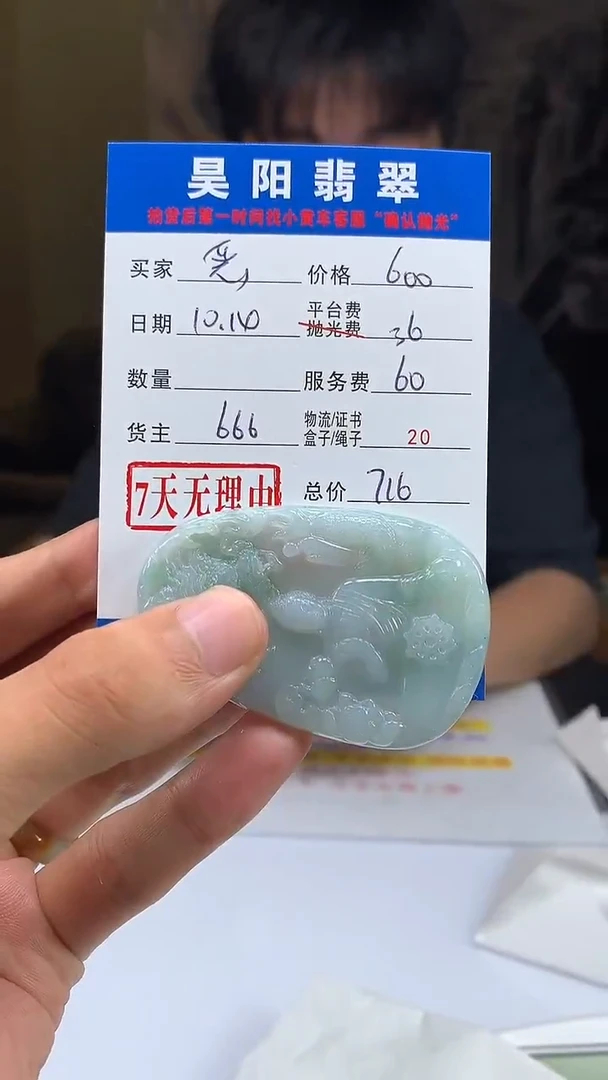 昊阳翡翠
拍货后第一时间找小黄车客服“确认抛光”
买家 价格 600
日期 10.10 平台费
抛光费 36
数量 服务费 60
货主 666 物流/证书
盒子/绳子 20
7天无理由 总价 716